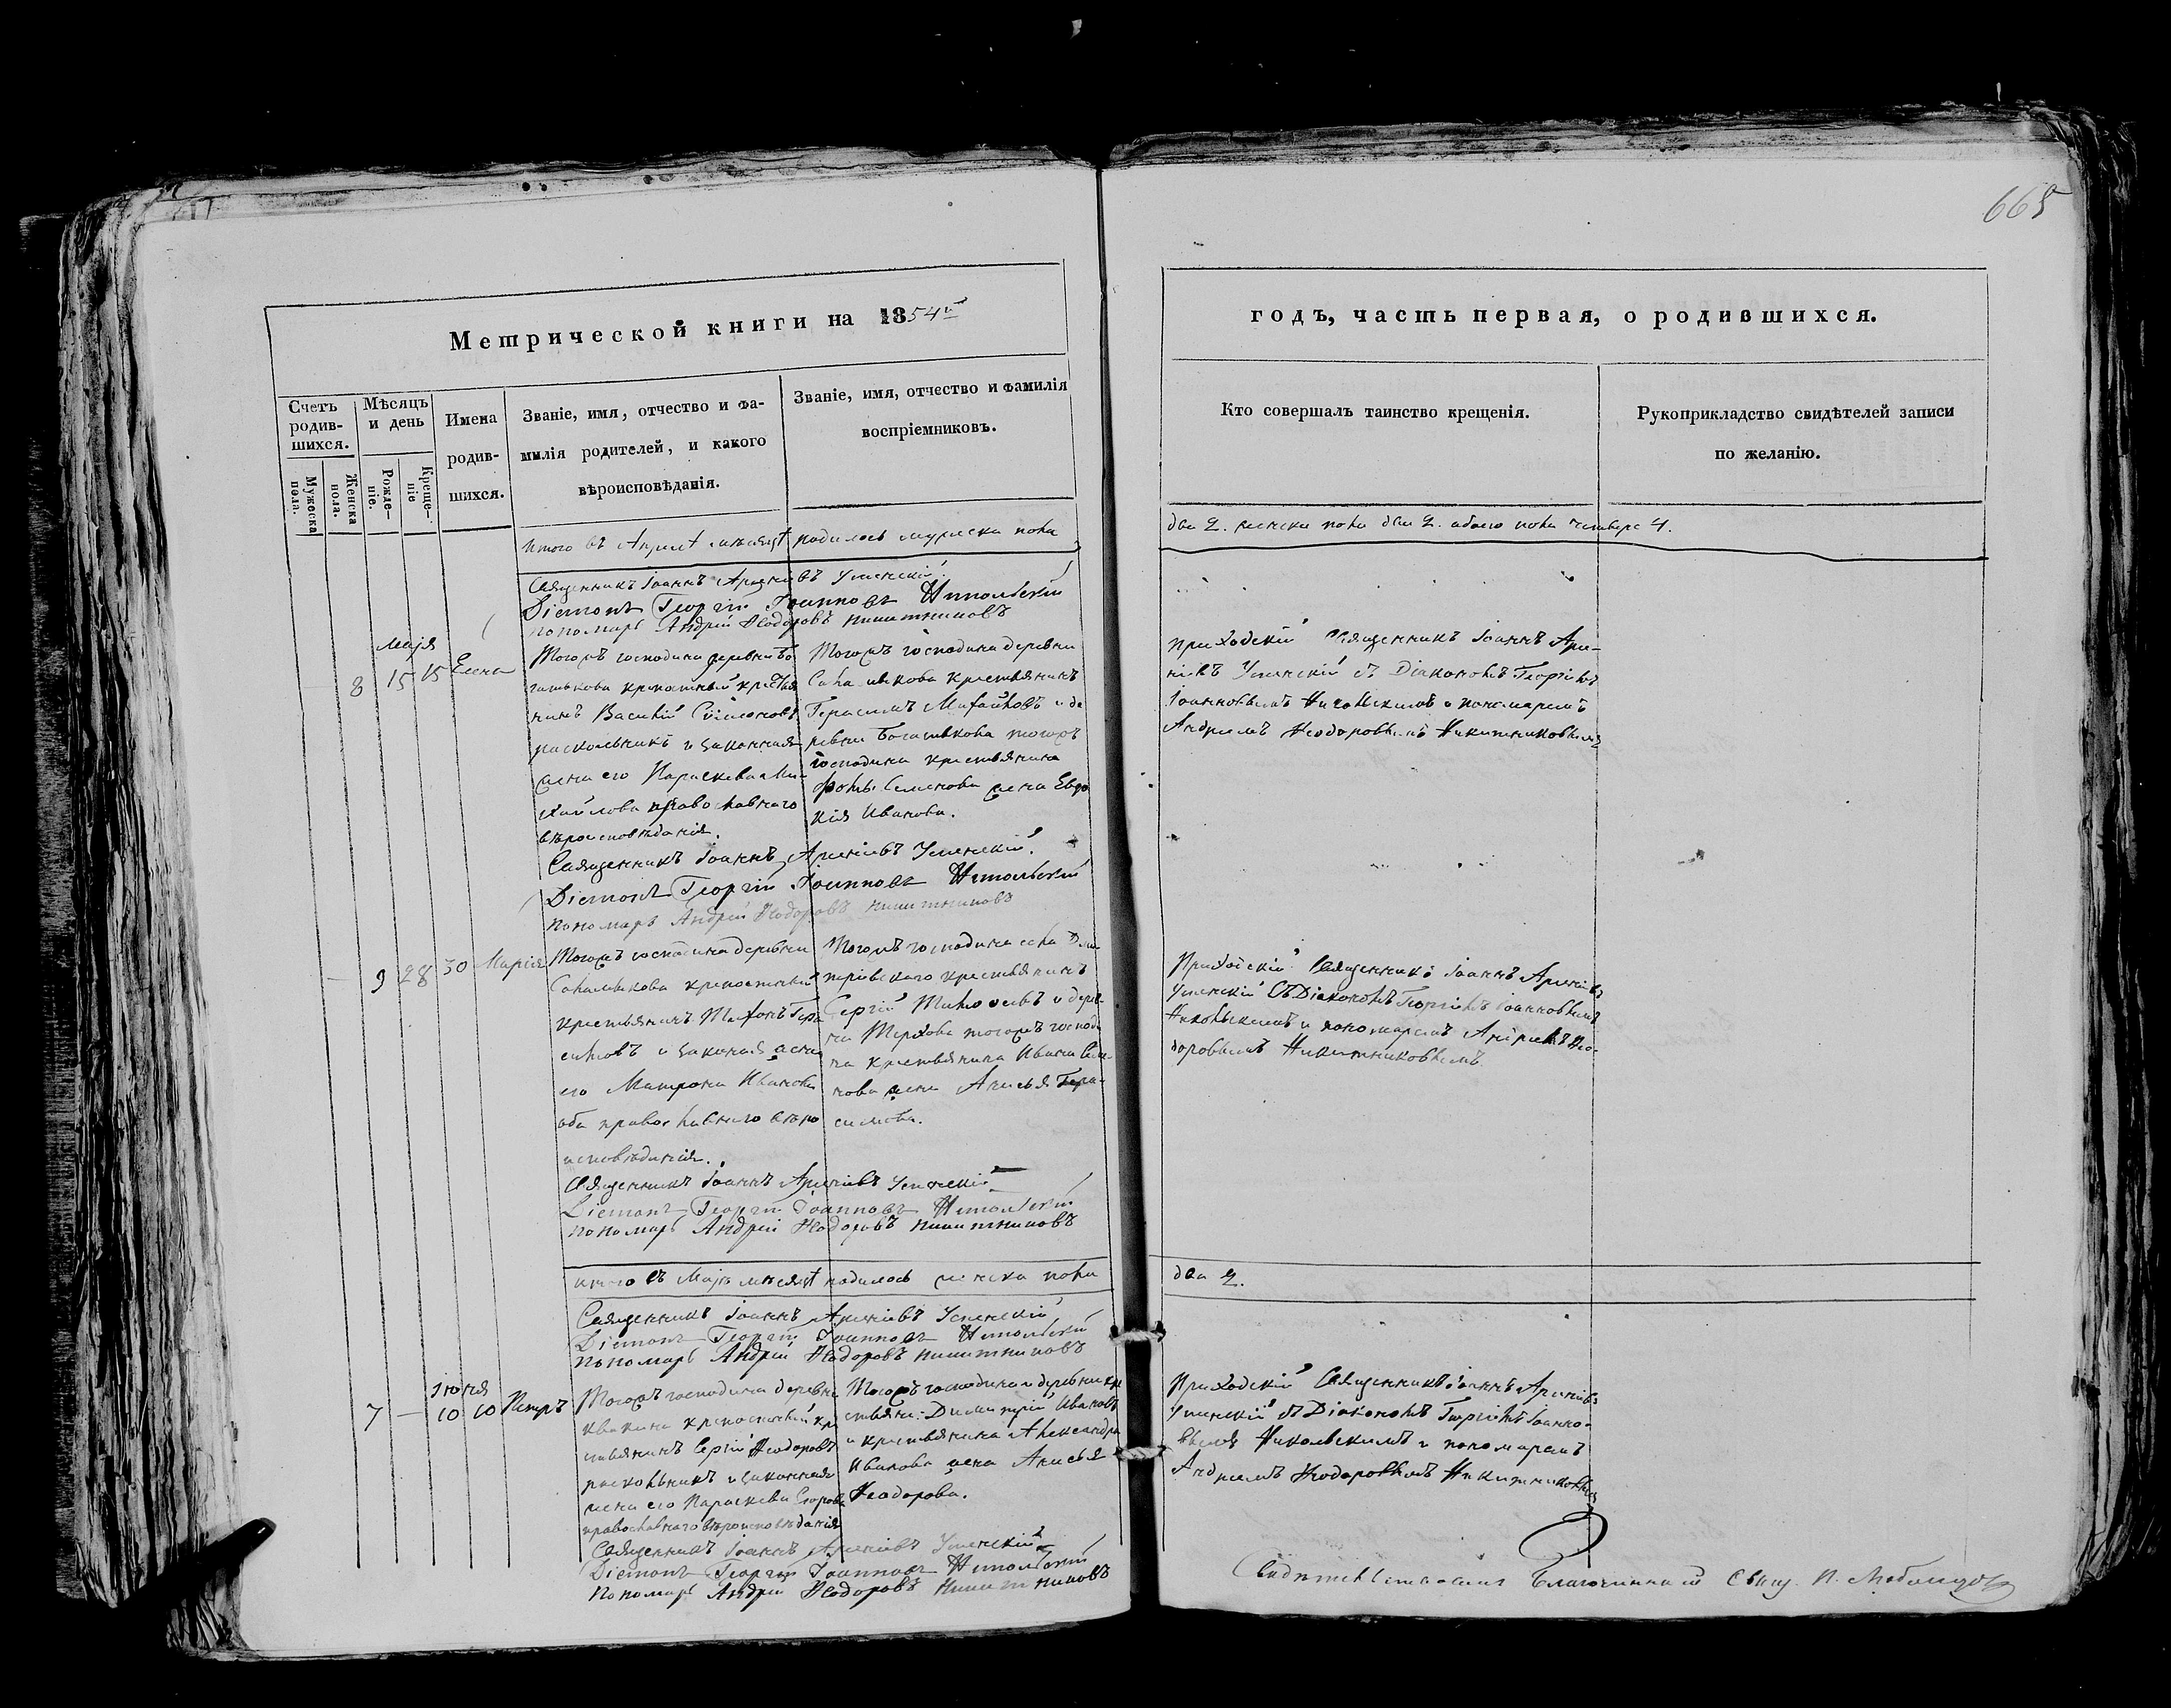 665
Метрической книги на 1854й
годъ, часть первая, о родившихся.
Счетъ родив-шихся.
Мужеска пола.
Женска пола.
Мѣсяцъ и день
Рожде-ніе.
Креще-ніе
Имена родив-шихся.
Званіе, имя, отчество и фа-
милія родителей, и какого
вѣроисповѣданія.
Званіе, имя, отчество и фамилія
воспріемниковъ.
Кто совершалъ таинство крещенія.
Рукоприкладство свидѣтелей записи
по желанію.
Итого въ Априлѣ мѣсяцѣ родилось мужеска пола
два 2. женска пола два 2. обоего пола четыре 4.
Священникъ Іоаннъ Арсеніевъ Успенскій
Діаконъ Георгій Іоанновъ Никольскій
Пономарь Андрей Ѳеодоровъ Никитниковъ
Маія
8 15 15 Елена
Тогожъ господина деревни Бо
гатькова крепостный крестья
нинъ Василій Симеоновъ
раскольникъ и законная
жена его Параскева Ми-
хайлова православнаго
вѣроисповѣданія.
Тогожъ господина деревни
крестьянинъ
Герасимъ Михайловъ и де
ревни Богатькова тогожъ
господина крестьянина
Фомы Семенова жена Евдо
кія Иванова.
Приходскій Священникъ Іоаннъ Арсе-
ніевъ Успенскій съ Діакономъ Георгіемъ
Іоанновымъ Никольскимъ и пономаремъ
Андреемъ Ѳеодоровымъ Никитниковымъ
Священникъ Іоаннъ Арсеніевъ Успенскій.
Діаконъ Георгій Іоанновъ Никольскій
Пономарь Андрей Ѳеодоровъ Никитниковъ
— 9 28 30 Марія
Тогожъ господина деревни
крепостный
крестьянинъ Тихонъ Гера
симовъ и законная жена
его Матрона Иванова
оба православнаго вѣро
исповѣданія.
Тогожъ господина села Дми
тріевскаго крестьянинъ
Сергій и дерев
ни тогожъ господи
на крестьянина Ивана Семе
нова жена Анисья Гера-
симова.
Приходскій Священникъ Іоаннъ Арсеніевъ
Успенскій Съ Діакономъ Георгіемъ Іоанновымъ
Никольскимъ и пономаремъ Андреемъ Ѳео-
доровымъ Никитниковымъ.
Священникъ Іоаннъ Арсеніевъ Успенскій
Діаконъ Георгій Іоанновъ Никольскій
Пономарь Андрей Ѳеодоровъ Никитниковъ
Итого въ Маіѣ мѣсяцѣ родилось женска пола
два 2.
Священникъ Іоаннъ Арсеніевъ Успенскій
Діаконъ Георгій Іоанновъ Никольскій
Пономарь Андрей Ѳеодоровъ Никитниковъ
Іюня
7 — 10 10 Петръ
Тогожъ господина деревни
крепостный кре
стьянинъ Сергій Ѳеодоровъ
раскольникъ и законная
жена его Параскева Егорова
православнаго вѣроисповѣданія
Тогожъ господина и деревни кре
стьянинъ Димитрій Ивановъ
и крестьянина Александра
Иванова жена Анисья
Ѳеодорова.
Приходскій Священникъ Іоаннъ Арсеніевъ
Успенскій съ Діакономъ Георгіемъ Іоанно-
вымъ Никольскимъ и пономаремъ
Андреемъ Ѳеодоровымъ Никитниковымъ
Священникъ Іоаннъ Арсеніевъ Успенскій
Діаконъ Георгій Іоанновъ Никольскій
Пономарь Андрей Ѳеодоровъ Никитниковъ
Благочинный Свящ. И.